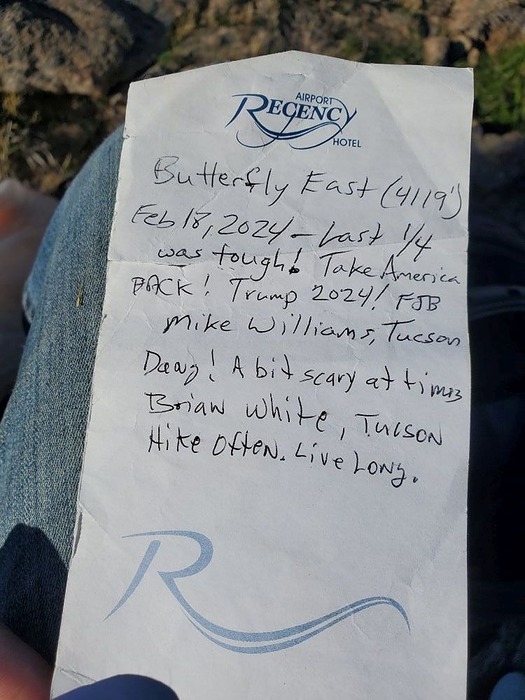 AIRPORT
REGENCY
HOTEL
Butterfly East (4119')
Feb 18, 2024 - Last 1/4
was tough! Take America
BACK! Trump 2024! FJB
Mike Williams, Tucson
Dang! A bit scary at times
Brian White, Tucson
Hike Often. Live Long.
R